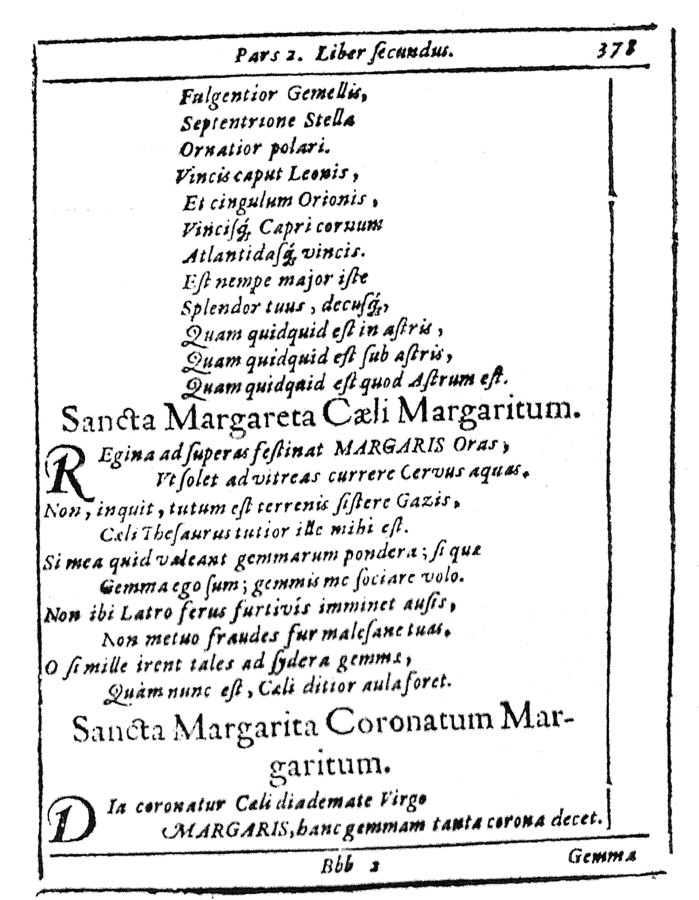 Pars 2. Liber ſecundus. 378
Fulgentior Gemellis,
Septentrione Stella
Ornatior polari.
Vincis caput Leonis,
Et cingulum Orionis,
Vinciſq́; Capri cornum
Atlantidaſq́; vincis.
Eſt nempe major iſte
Splendor tuus, decuſq́;,
Quam quidquid eſt in aſtris,
Quam quidquid eſt ſub aſtris,
Quam quidquid eſt quod Aſtrum eſt.
Sancta Margareta Cæli Margaritum.
REgina ad ſuperas feſtinat MARGARIS Oras,
Vt ſolet ad vitreas currere Cervus aquas.
Non, inquit, tutum eſt terrenis ſiſtere Gazis,
Cæli Theſaurus tutior ille mihi eſt.
Si mea quid valeant gemmarum pondera; ſi quæ
Gemma ego ſum; gemmis me ſociare volo.
Non ibi Latro ferus furtivis imminet auſis,
Non metuo fraudes fur maleſane tuas.
O ſi mille irent tales ad ſydera gemmæ,
Quàm nunc eſt, Cæli ditior aula foret.
Sancta Margarita Coronatum Mar-
garitum.
DIa coronatur Cæli diademate Virgo
MARGARIS, hanc gemmam tanta corona decet.
Bbb 2 Gemma